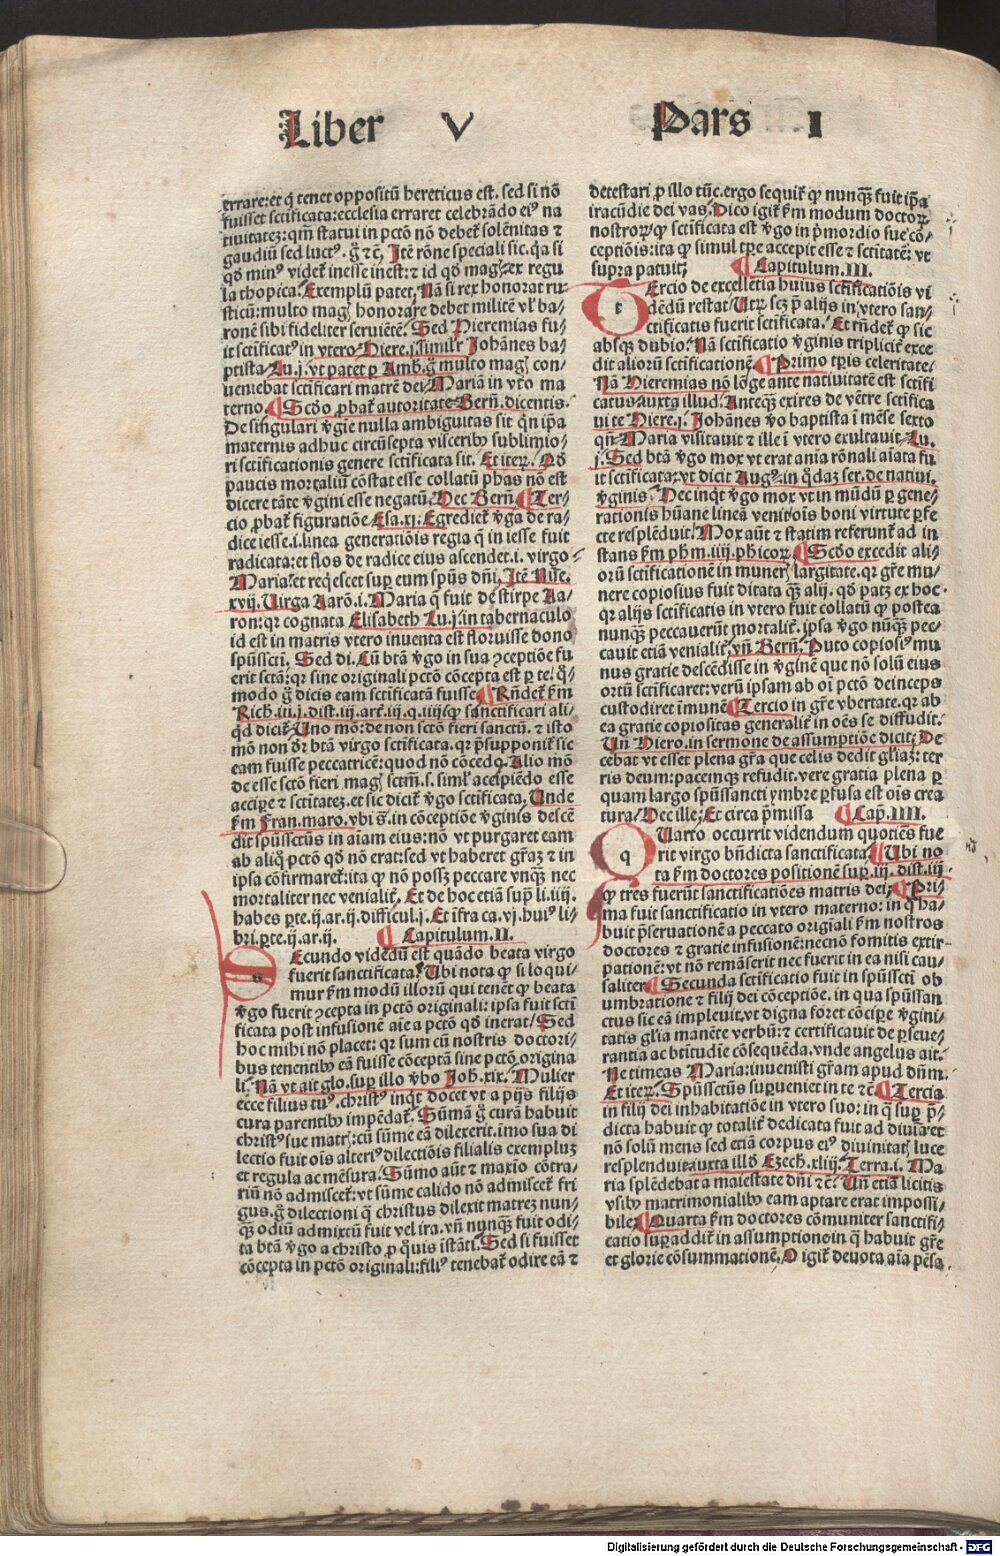 Liber V Pars I
errare: et q̄ tenet oppositū hereticus est. sed si nō
fuisset sctificata: ecclesia erraret celebrādo eiꝰ na
tiuitatez: qm̄ statui in pctō nō debet solēnitas ⁊
gaudiū sed luctꝰ. g̃ ⁊c̄. Itē rōne speciali sic. q̄a si
qd̓ minꝰ videt̃ inesse inest: ⁊ id qd̓ magꝭ ex regu
la thopica. Exemplū patet. Nā si rex honorat ru⸗
sticū: multo magꝭ honorare debet militē vl̓ ba⸗
ronē sibi fideliter seruiētē. Sed Hieremias fu⸗
it sctificatꝰ in vtero. Hiere. j. similr̃ Johānes ba⸗
ptista. Lu. j. vt patet ꝑ Amb. g̃ multo magꝭ con⸗
ueniebat sctificari matrē dei Mariā in vtro ma
terno. Scdo ꝓbat̃ autoritate Bern̄. dicentis.
De singulari v̓gīe nulla ambiguitas sit qn̄ ip̄a
maternis adhuc circūsepta viscerib⁹ sublimio⸗
ri sctificationis genere sctificata sit. Et iteꝝ. Qd̓
paucis mortaliū cōstat esse collatū ꝓhas nō est
dicere tāte v̓gini esse negatū. Hec Bern̄. Ter⸗
cio ꝓbat̃ figuratiōe Esa. xj. Egrediet̃ v̓ga de ra⸗
dice iesse. i. linea generatiōis regia q̄ in iesse fuit
radicata: et flos de radice eius ascendet. i. virgo
Maria: et req̓escet suꝑ eum spūs dn̄i. Itē Nūe.
xvij. Uirga Aarō. i. Maria q̄ fuit de stirpe Aa⸗
ron: qr cognata Elisabeth Lu. j. in tabernaculo
id est in matris vtero inuenta est floruisse dono
spūsscti. Sed di. Cū btā v̓go in sua ꝯceptiōe fu
erit sctā: qr sine originali pctō cōcepta est ꝑ te: q̊⸗
modo g̃ dicis eam sctificatā fuisse. Rn̄det̃ ẜm
Rich. iij. j. dist. iij. art̄. iij. q. iiij. ꝙ sanctificari ali⸗
q̓d dicit̃. Uno mo: de non sctō fieri sanctū. ⁊ isto
mō non dr̃ btā virgo sctificata. qr p̄supponit̃ sic
eam fuisse peccatricē: quod nō cōcedo. Alio mō
de esse sctō fieri magꝭ sctm̄. s. simĺ accipiēdo esse
accipe ⁊ sctitatez. et sic dicit̃ v̓go sctificata. Unde
ẜm Fran. maro. vbi s̃. in cōceptiōe v̓gīnis descē
dit spūssctūs in aīam eius: nō vt purgaret eam
ab aliq̊ pctō qd̓ nō erat: sed vt haberet gr̄az ⁊ in
ipsa cōfirmaret̃: ita ꝙ nō possꝫ peccare vnqꝫ nec
mortaliter nec venialit̃. Et de hoc etiā supͣ li. iiij.
habes ꝑte. ij. ar. ij. difficul. j. Et īfra ca. vj. huiꝰ li⸗
bri. ꝑte. ij. ar. ij. Capitulum. II.
s Ecundo vidēdū est quādo beata virgo
fuerit sanctificata. Ubi nota ꝙ si loqui⸗
mur ẜm modū illorū qui tenēt ꝙ beata
v̓go fuerit ꝯcepta in pctō originali: ipsa fuit sctī
ficata post infusionē aīe a pctō qd̓ inerat. Sed
hoc mihi nō placet: qr sum cū nostris doctori⸗
bus tenentib⁹ eā fuisse cōceptā sine pctō origina
li. Nā vt ait glo. suꝑ illo v̓bo Joh. xix. Mulier
ecce filius tuꝰ. christꝰ inq̓t docet vt a pijs filijs
cura parentib⁹ impēdat̃. Sūmā g̃ curā habuit
christꝰ sue matrꝭ: cū sūme eā dilexerit. imo sua di
lectio fuit oīs alteriꝰ dilectiōis filialis exempluz
et regula ac mēsura. Sūmo aūt ⁊ maxīo cōtra⸗
riū nō admiscet̃: vt sūme calido nō admiscet̃ fri
gus. g̃ dilectioni q̄ christus dilexit matrez nun⸗
qꝫ odiū admixtū fuit vel ira. vn̄ nunqꝫ fuit odi⸗
ta btā v̓go a christo ꝑ q̊uis īstāti. Sed si fuisset
cōcepta in pctō originali: filiꝰ tenebat̃ odire eā ⁊
detestari ꝑ illo tūc. ergo sequit̃ ꝙ nunqꝫ fuit ip̄a
iracūdie dei vas. Dico igit̃ ẜm modum doctoꝝ
nostroꝝ ꝙ sctificata est v̓go in p̄mordio sue cō⸗
ceptiōis: ita ꝙ simul tꝑe accepit esse ⁊ sctitatē: vt
supra patuit. Capitulum. III.
t Ercio de excellētia huius sctificatiōis vi
dēdū restat. Utꝝ scꝫ p̄ alijs in vtero san⸗
ctificatis fuerit sctificata. Et rn̄det̃ ꝙ sic
absqꝫ dubio. Nā sctificatio v̓ginis triplicit̃ exce
dit aliorū sctificationē. Primo tꝑis celeritate.
Nā Hieremias nō lōge ante natiuitatē est sctifi
catus. iuxta illud. Anteqꝫ exires de vētre sctifica
ui te. Hiere. j. Johānes v̓o baptista ī mēse sexto
qn̄ Maria visitauit ⁊ ille ī vtero exultauit. Lu.
j. Sed btā v̓go mox vt erat aīa rōnali aīata fu
it sctificata: vt dicit Augꝰ. in q̊daz ser. de natiui.
v̓ginis. Hec inq̓t v̓go mox vt in mūdū ꝑ gene⸗
rationis hūane lineā venit: oīs boni virtute ꝑfe
cte resplēduit. Mox aūt ⁊ statim referunt̃ ad in
stans ẜm phm̄. iiij. phicoꝝ. Scdo excedit ali⸗
orū sctificationē in munerꝭ largitate. qr gr̄e mu⸗
nere copiosius fuit ditata qꝫ alij. qd̓ patꝫ ex hoc⸗
qr alijs sctificatis in vtero fuit collatū ꝙ postea
nunqꝫ peccauerūt mortalit̃. ipsa v̓go nūqꝫ pec⸗
cauit etiā venialit̃. vn̄ Bern̄. Puto copiosiꝰ mu
nus gratie descēdisse in v̓gīnē que nō solū eius
ortū sctificaret: verū ipsam ab oī pctō deinceps
custodiret imunē. Tercio in gr̄e vbertate. qr ab
ea gratie copiositas generalit̃ in oēs se diffudit.
Un̄ Hiero. in sermone de assumptiōe dicit. De
cebat vt esset plena gr̄a que celis dedit gl̄iaz: ter
ris deum: pacemqꝫ refudit. vere gratia plena ꝑ
quam largo spūssancti ymbre ꝑfusa est oīs crea
tura. Hec ille. Et circa p̄missa Cap̄. IIII.
q Uarto occurrit videndum quotiēs fue
rit virgo bn̄dicta sanctificata. Ubi no
ta ẜm doctores positionē suꝑ. iij. dist. iij.
ꝙ tres fuerūt sanctificatiōes matris dei. Pri⸗
ma fuit sanctificatio in vtero materno: in q̄ ha⸗
buit p̄seruationē a peccato origīali ẜm nostros
doctores ⁊ gratie infusionē: necnō fomitis extir⸗
pationē: vt nō remāserit nec fuerit in ea nisi cau⸗
saliter. Secunda sctificatio fuit in spūssctī ob
umbratione ⁊ filij dei cōceptiōe. in qua spūssan
ctus sic eā impleuit. vt digna foret cōcipe v̓gini⸗
tatis gl̄ia manēte verbū: ⁊ certificauit de ꝑseue⸗
rantia ac btitudīe cōsequēda. vnde angelus ait.
Ne timeas Maria: inuenisti gr̄am apud dn̄m.
Et iteꝝ. Spūssctūs suꝑueniet in te ⁊c̄. Tercia
in filij dei inhabitatiōe in vtero suo: in q̄ suꝑ p̄⸗
dicta habuit ꝙ totalit̃ dedicata fuit ad diuīa: et
nō solū mens sed etiā corpus eiꝰ diuinitatꝭ luce
resplenduit. iuxta illd̓ Ezech. xliij. Terra. i. Ma
ria splēdebat a maiestate dn̄i ⁊c̄. Un̄ etiā licitis
vsib⁹ matrimonialib⁹ eam aptare erat impossi⸗
bile. Quarta ẜm doctores cōmuniter sanctifi⸗
catio suꝑaddit̃ in assumptione in q̄ habuit gr̄e
et glorie cōsummationē. O igit̃ deuota aīa pēsa
Digitalisierung gefördert durch die Deutsche Forschungsgemeinschaft - DFG